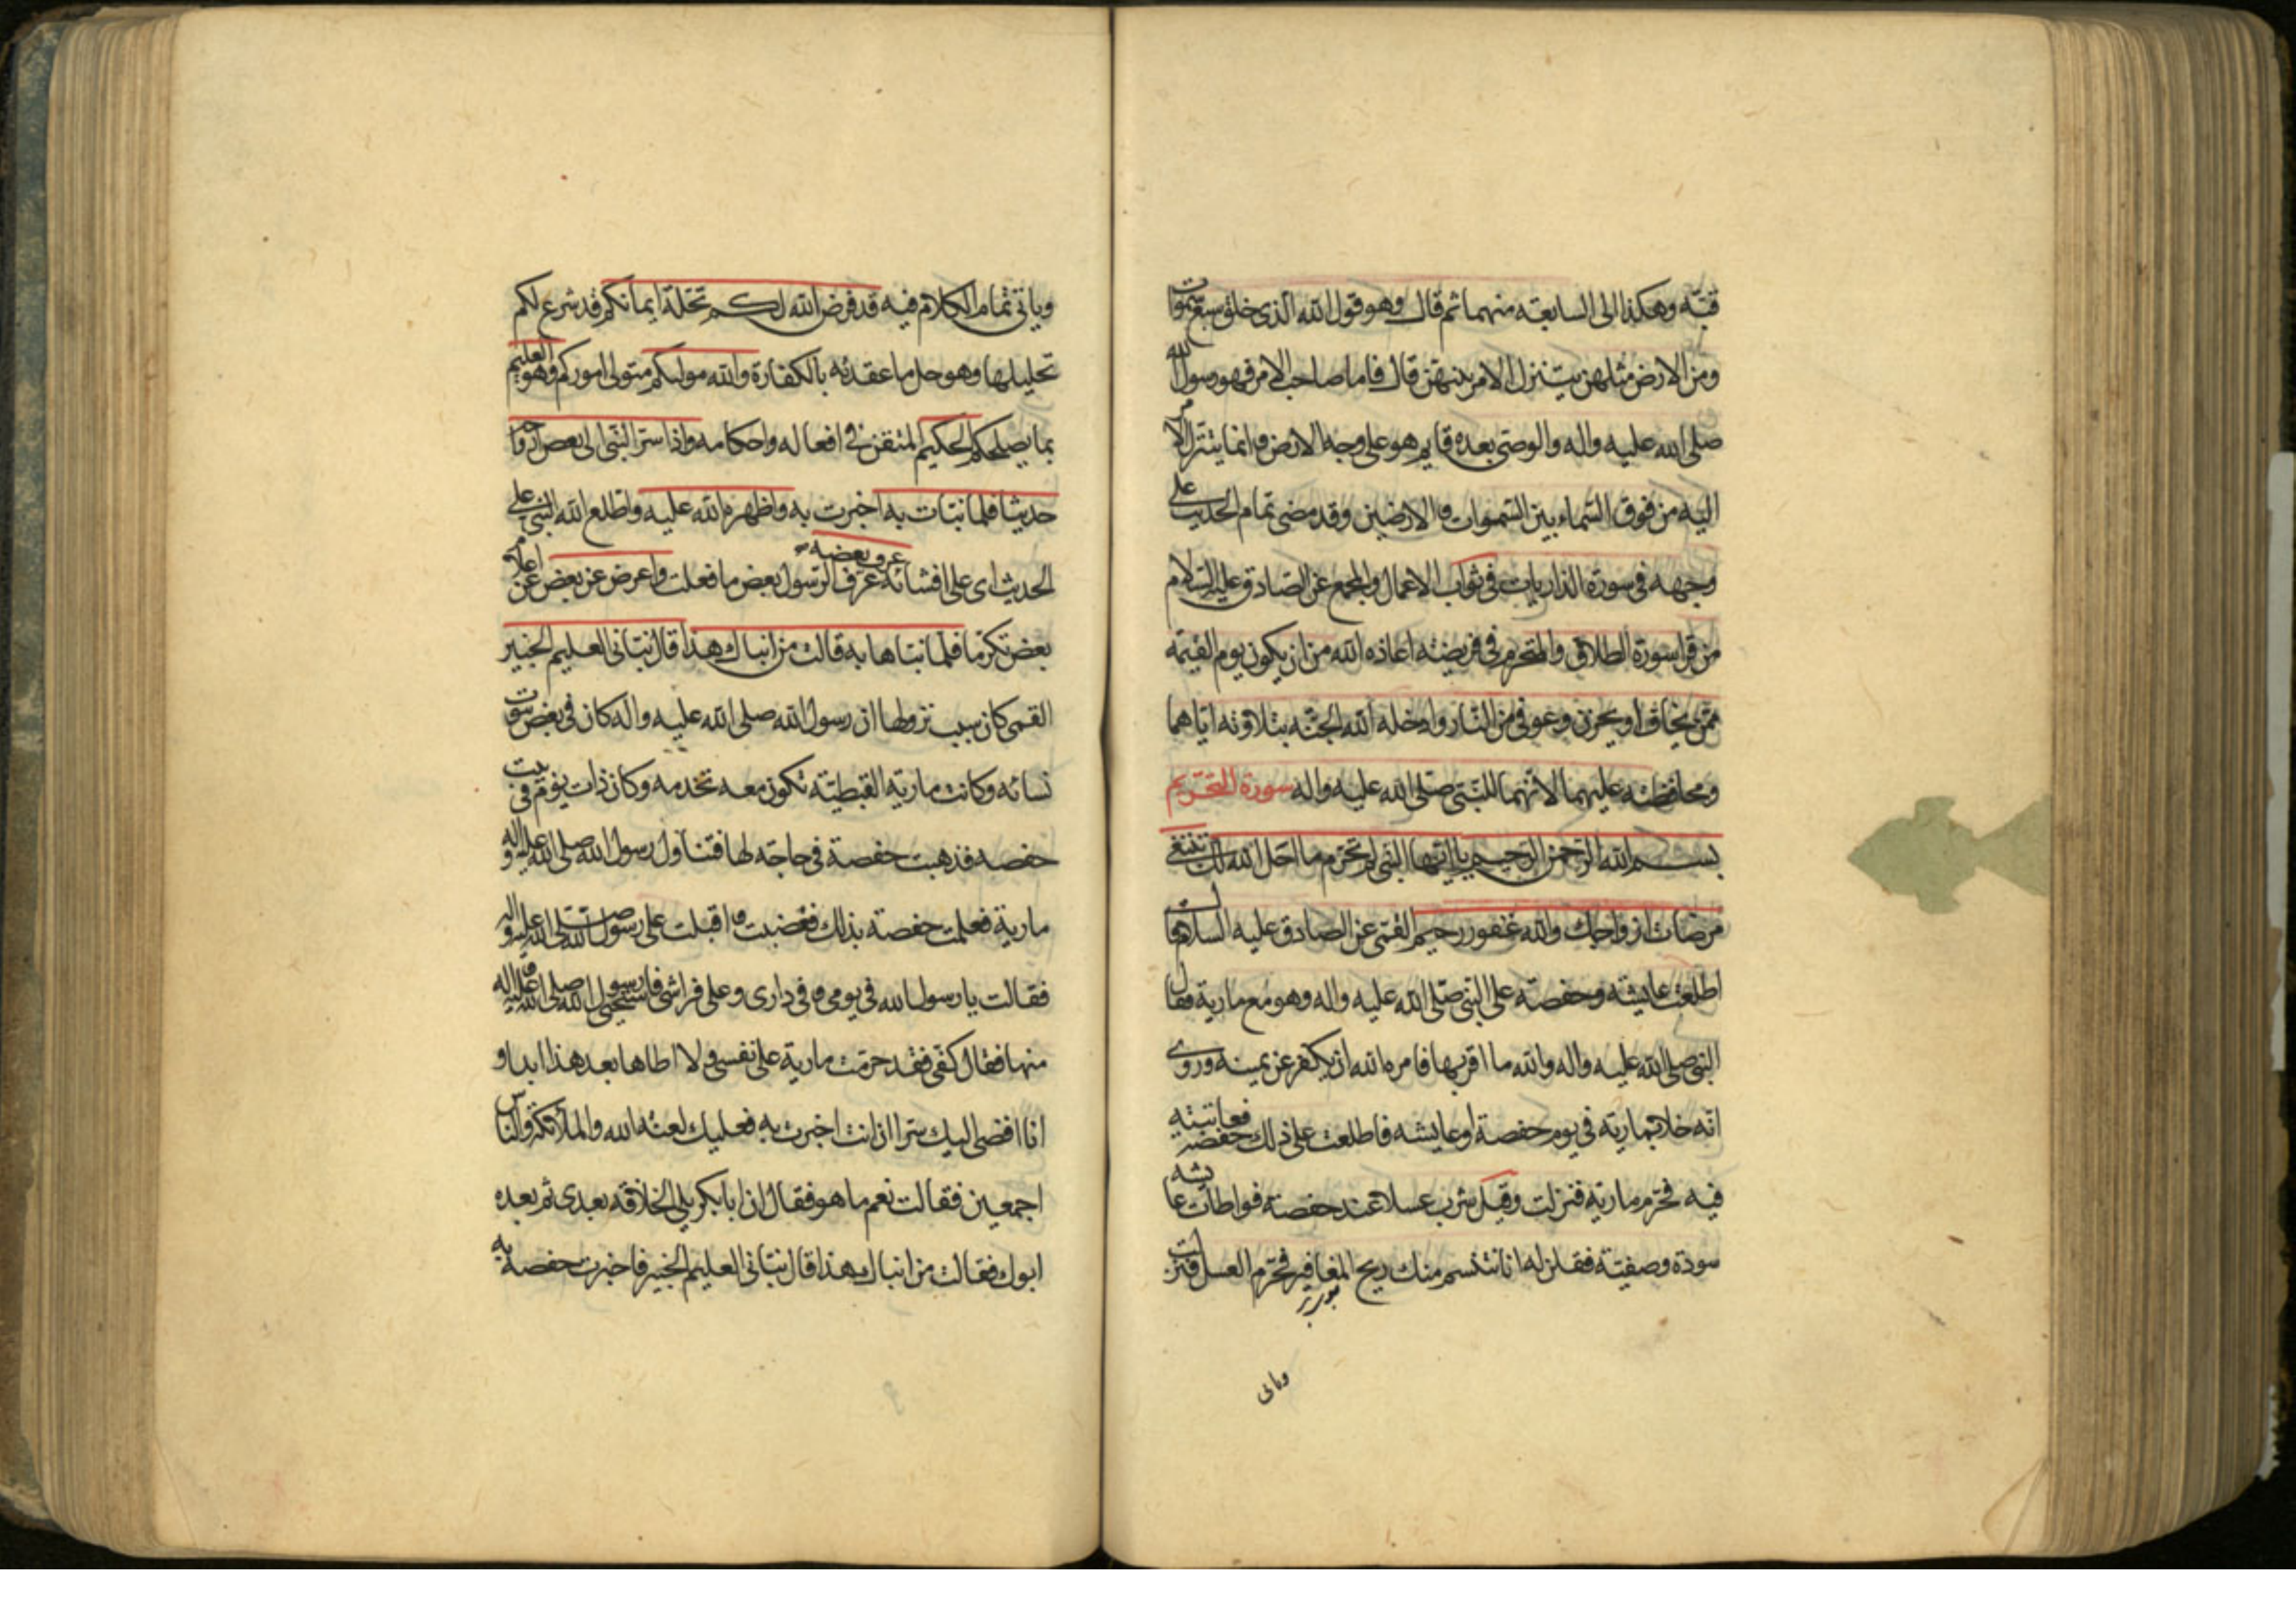 قبّه وهكذا الى السابعة منهما ثم قال وهو قول الله الذى خلق سبع سموات
ومن الارض مثلهن يتنزل الامر بينهن قال فاما صاحب الامر فهو رسول الله
صلى الله عليه واله والوصى بعده قايم هو على وجه الارض وانما يتنزل الامر
اليه من فوق السماء بين السموات والارضين وقد مضى تمام الحديث على
وجهه فى سورة الذاريات فى ثواب الاعمال والمجمع عن الصادق عليه السلام
من قرا سورة الطلاق والتحريم فى فريضته اعاذه الله من ان يكون يوم القيمة
ممن يخاف او يحزن وعوفى من النار وادخله الله الجنة بتلاوته اياهما
ومحافظته عليهما لانهما للنبى صلى الله عليه واله سورة التحريم
بسم الله الرحمن الرحيم يا ايها النبى لم تحرم ما احل الله لك تبتغى
مرضات ازواجك والله غفور رحيم القمى عن الصادق عليه السلام
اطلعت عايشه وحفصة على النبى صلى الله عليه واله وهو مع مارية فقال
النبى صلى الله عليه واله والله ما اقربها فامره الله ان يكفر عن يمينه وروى
انه خلا بمارية فى يوم حفصة او عايشه فاطلعت على ذلك حفصة فعاتبته
فيه فحرم مارية فنزلت وقيل شرب عسلا عند حفصة فواطات عايشه
سودة وصفية فقلن له انا نتنسم منك ريح المغافير فحرم العسل فنزلت
وياتى
وياتى تمام الكلام فيه قد فرض الله لكم تحلة ايمانكم قد شرع لكم
تحليلها وهو حل ما عقدته بالكفارة والله موليكم متولى اموركم وهو العليم
بما يصلحكم الحكيم المتقن فى افعاله واحكامه واذا سر النبى الى بعض ازواجه
حديثا فلما نبات به اخبرت به واظهره الله عليه واطلع الله النبى على
الحديث اى على افشائه عرف بعضه عرف الرسول بعض ما فعلت واعرض عن بعض عن اعلام
بعض تكرما فلما نباها به قالت من انباك هذا قال نبانى العليم الخبير
القمى كان سبب نزولها ان رسول الله صلى الله عليه واله كان فى بعض بيوت
نسائه وكانت مارية القبطية تكون معه تخدمه وكان ذات يوم فى بيت
حفصه فذهبت حفصة فى حاجة لها فتناول رسول الله صلى الله عليه واله
مارية فعلمت حفصة بذلك فغضبت واقبلت على رسول الله صلى الله عليه واله
فقالت يا رسول الله فى يومى وفى دارى وعلى فراشى فاستحيى رسول الله صلى الله عليه واله
منها فقال كفى فقد حرمت مارية على نفسى ولا اطاها بعد هذا ابدا و
انا افضى اليك سرا ان انت اخبرت به فعليك لعنة الله والملائكة والناس
اجمعين فقالت نعم ما هو فقال ان ابا بكر يلى الخلافة بعدى ثم بعده
ابوك فقالت من انباك هذا قال نبانى العليم الخبير فاخبرت حفصة به